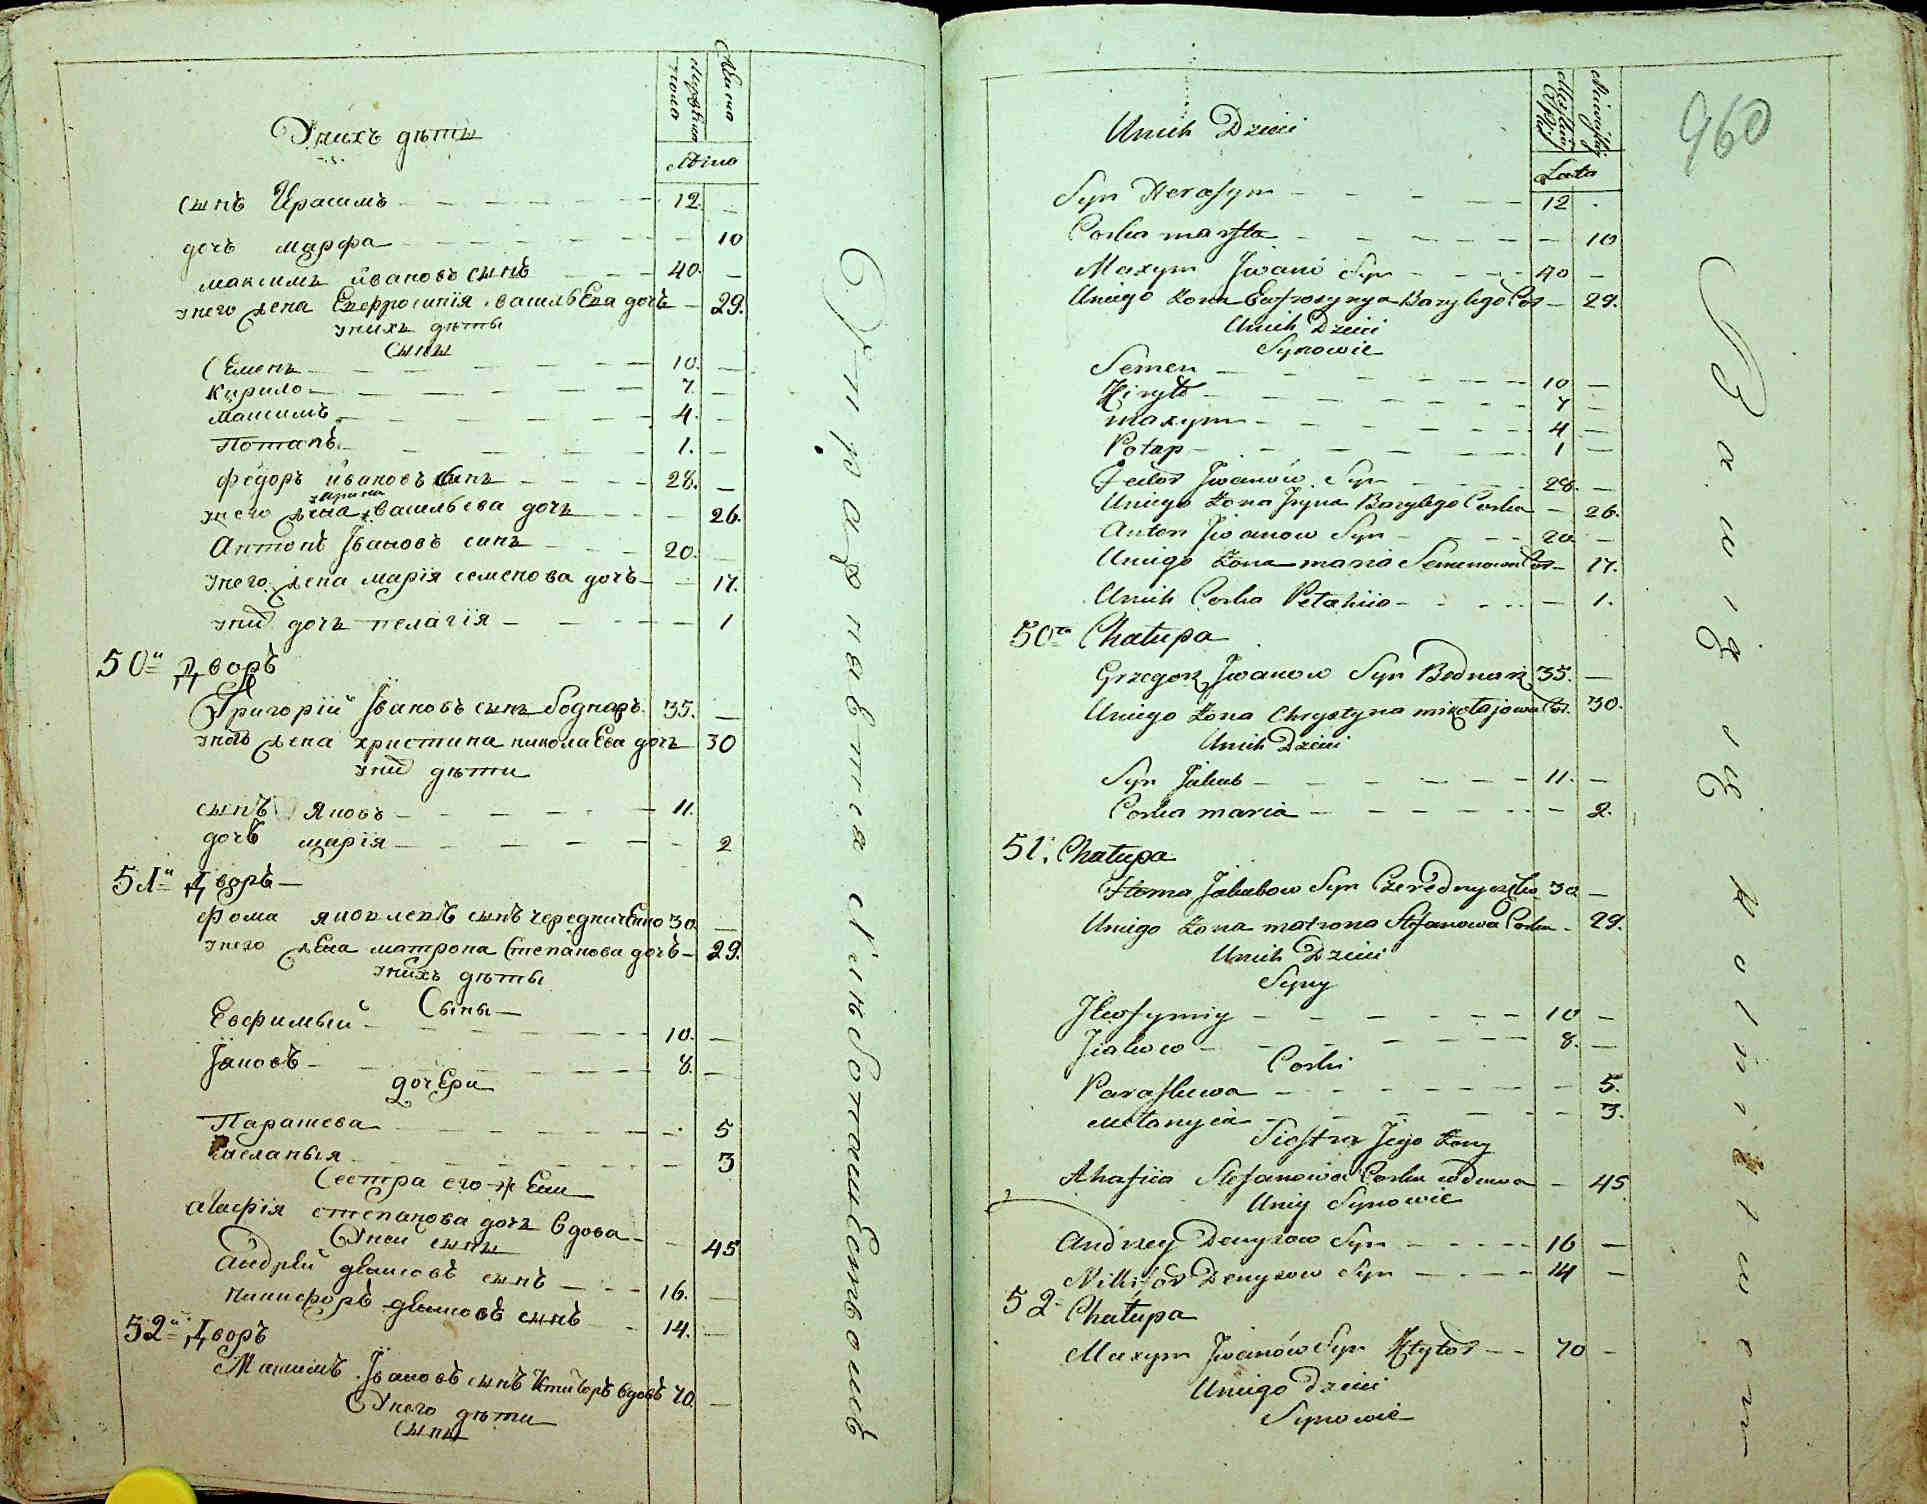 Мужеска пола
Женска
Лѣта
Унихъ дѣти
сынъ Ирасимъ 12.
дочь марфа 10
максимъ ивановъ сынъ 40.
унего жена Евфросинія васильева дочь 29.
унихъ дѣти
сыны
Семенъ 10.
Кирило 7.
Максимъ 4.
Потапъ 1.
федоръ ивановъ сынъ 28.
ирина
унего жена васильева дочь 26.
Антонъ Івановъ синъ 20.
унего жена марія семенова дочь 17.
унихъ дочь пелагія 1
50й Дворъ
Григорій Івановъ сынъ боднаръ 35.
унего жена христина николаева дочь 30
унихъ дѣти
сынъ Яковъ 11.
дочь марія 2
51й Дворъ
фома яковлевъ сынъ чередниченко 30.
унего жена матрона Степанова дочь 29.
унихъ дѣти
Сыны
Евфимый 10.
Іаковъ 8.
дочери
Парашева 5
меланья 3
Сестра его жены
агафія степанова дочь вдова 45
Унеи сыны
Андрей денисовъ сынъ 16.
никифоръ денисовъ сынъ 14.
52й Дворъ
Максимъ Івановъ сынъ ктиторъ вдовъ 70.
Унего дѣти
сыны
960
Lata
Unich Dzieci
Syn Herasym 12
Corka marfta 10
Maxym Jwanów Syn 40
Uniego żona Ewfrosynya Bazylego Cor 29.
Unich Dzieci
Synowie
Semen 10
Kiryło 7
maxym 4
Potap 1
Fedor Jwanów Syn 28.
Uniego żona Jryna Bazylego Corka 26.
Anton Jwanow Syn 20
Uniego żona maria Semenowna Cor 17.
Unich Corka Pelahiia 1.
50ta Chałupa
Grzegorz Jwanow Syn Bednarz 35.
Uniego żona Chrystyna mikołajowa Cor. 30.
Unich Dzieci
Syn Jakub 11.
Corka maria 2.
51. Chałupa
Homa Jakubow Syn Czerednyczenko 30
Uniego żona matrona Stefanowa Corka 29.
Unich Dzieci
Syny
Jewfymiy 10
Jiakow 8.
Corki
Paraskewa 5.
Mełanyia 3.
Siostra Jego żony
Ahafiia Stefanowa Corka wdowa 45
Uniy Synowie
Andrzey Denysow Syn 16
Nikifor Denysow Syn 14
52 Chałupa
Maxym Jwanów Syn Ktytor 70
Uniego Dzieci
Synowie